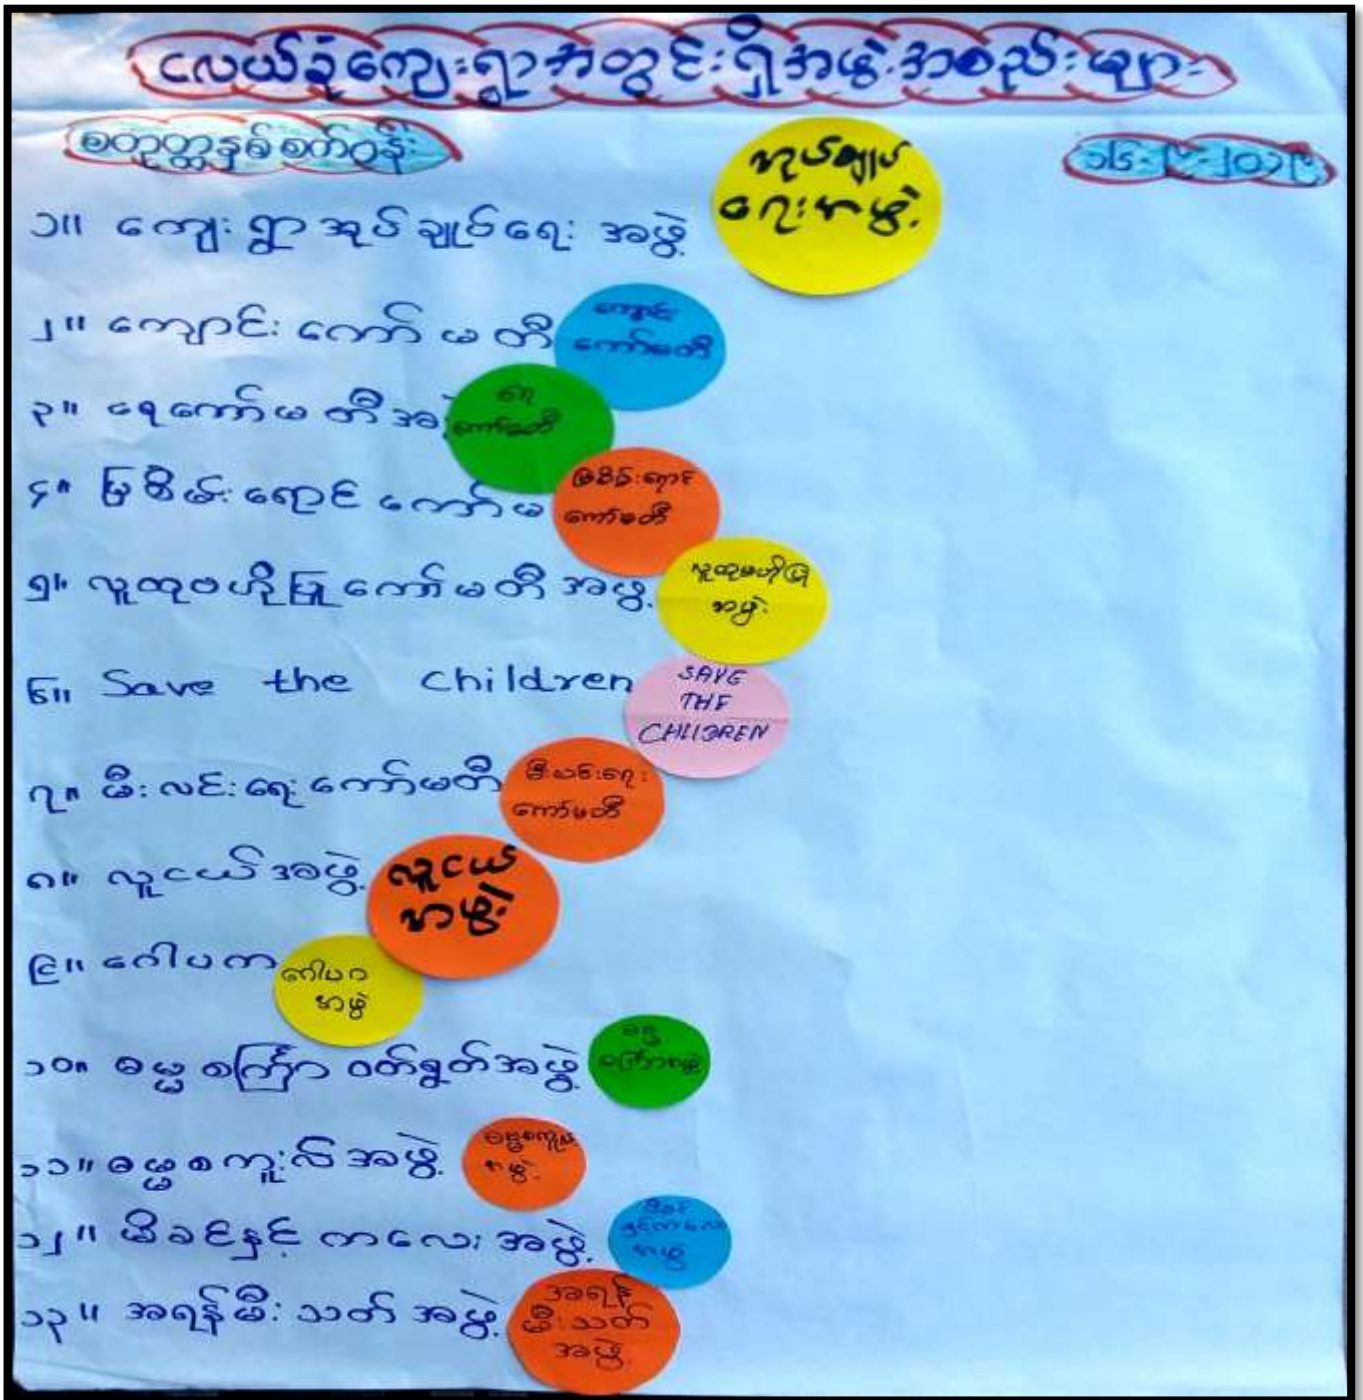 ငလယ်ခုံကျေးရွာအတွင်းရှိအဖွဲ့အစည်းများ
စတုတ္ထနှစ်စက်ဝန်း
၁၆-၉-၂၀၁၉
၁။ ကျေးရွာအုပ်ချုပ်ရေးအဖွဲ့
အုပ်ချုပ်
ရေးအဖွဲ့
၂။ ကျောင်းကော်မတီ
ကျောင်း
ကော်မတီ
၃။ ရေကော်မတီအ
ရေ
ကော်မတီ
၄။ မြစိမ်းရောင်ကော်မ
မြစိမ်းရောင်
ကော်မတီ
၅။ လူထုဗဟိုပြုကော်မတီအဖွဲ့
လူထုဗဟိုပြု
အဖွဲ့
၆။ Save the children
SAVE
THE
CHLIDREN
၇။ မီးလင်းရေးကော်မတီ
မီးလင်းရေး
ကော်မတီ
၈။ လူငယ်အဖွဲ့
လူငယ်
အဖွဲ့
၉။ ဂေါပက
ဂေါပက
အဖွဲ့
၁၀။ ဓမ္မစကြာဝတ်ရွတ်အဖွဲ့
ဓမ္မ
စကြာအဖွဲ့
၁၁။ ဓမ္မစကူးလ်အဖွဲ့
ဓမ္မစကူးလ်
အဖွဲ့
၁၂။ မိခင်နှင့်ကလေးအဖွဲ့
မိခင်
နှင့်ကလေး
အဖွဲ့
၁၃။ အရန်မီးသတ်အဖွဲ့
အရန်
မီးသတ်
အဖွဲ့